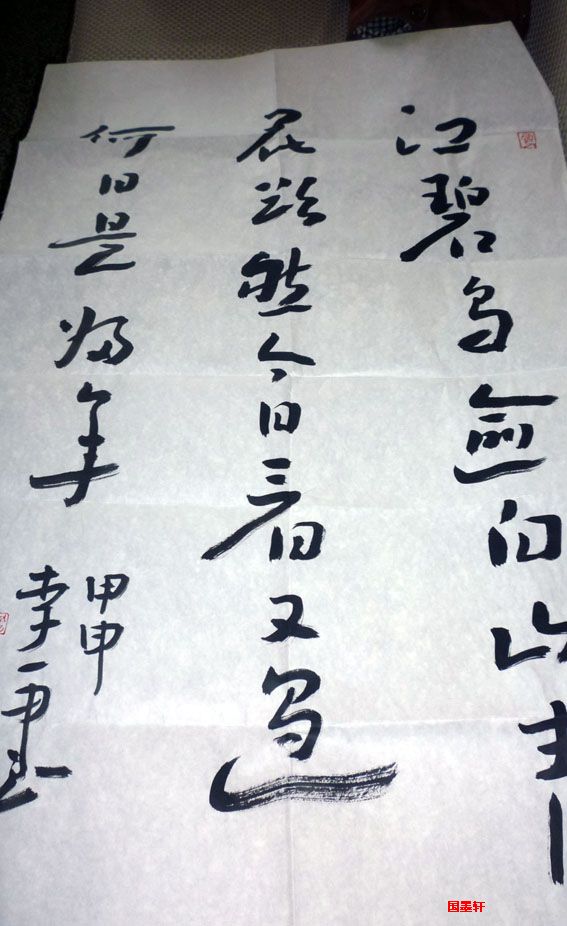 江碧鸟逾白山青
花欲然今日看又过
何日是归年
甲申
李一
国墨轩